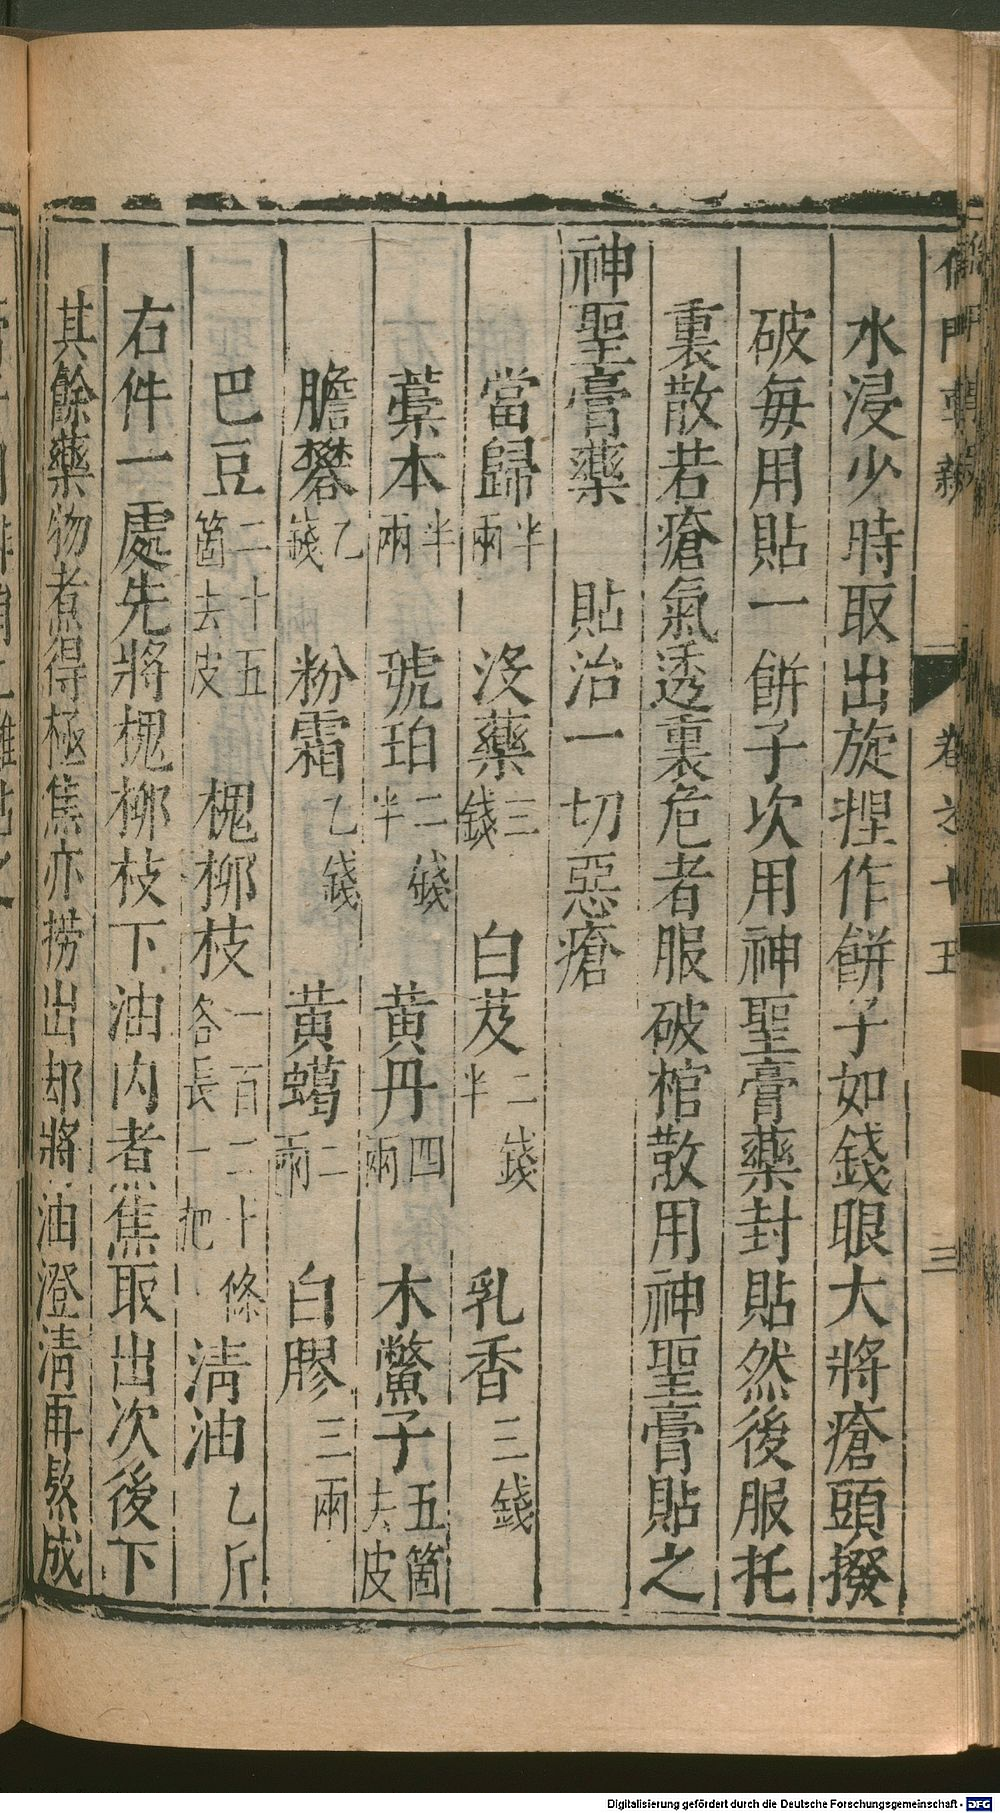 儒門事親 卷之十五 三
水浸少時取出旋捏作餅子如錢眼大將瘡頭撥
破每用貼一餅子次用神聖膏藥封貼然後服托
裏散若瘡氣透裏危者服破棺散用神聖膏貼之
神聖膏藥 貼治一切惡瘡
當歸半兩 沒藥三錢 白芨二錢半 乳香三錢
藁本半兩 琥珀二錢半 黃丹四兩 木鱉子五箇去皮
膽礬乙錢 粉霜乙錢 黃蠟二兩 白膠三兩
巴豆二十五箇去皮 槐柳枝一百二十條各長一把 淸油乙斤
右件一處先將槐柳枝下油內煮焦取出次後下
其餘藥物煮得極焦亦撈出却將油澄淸再熬成
Digitalisierung gefördert durch die Deutsche Forschungsgemeinschaft - DFG